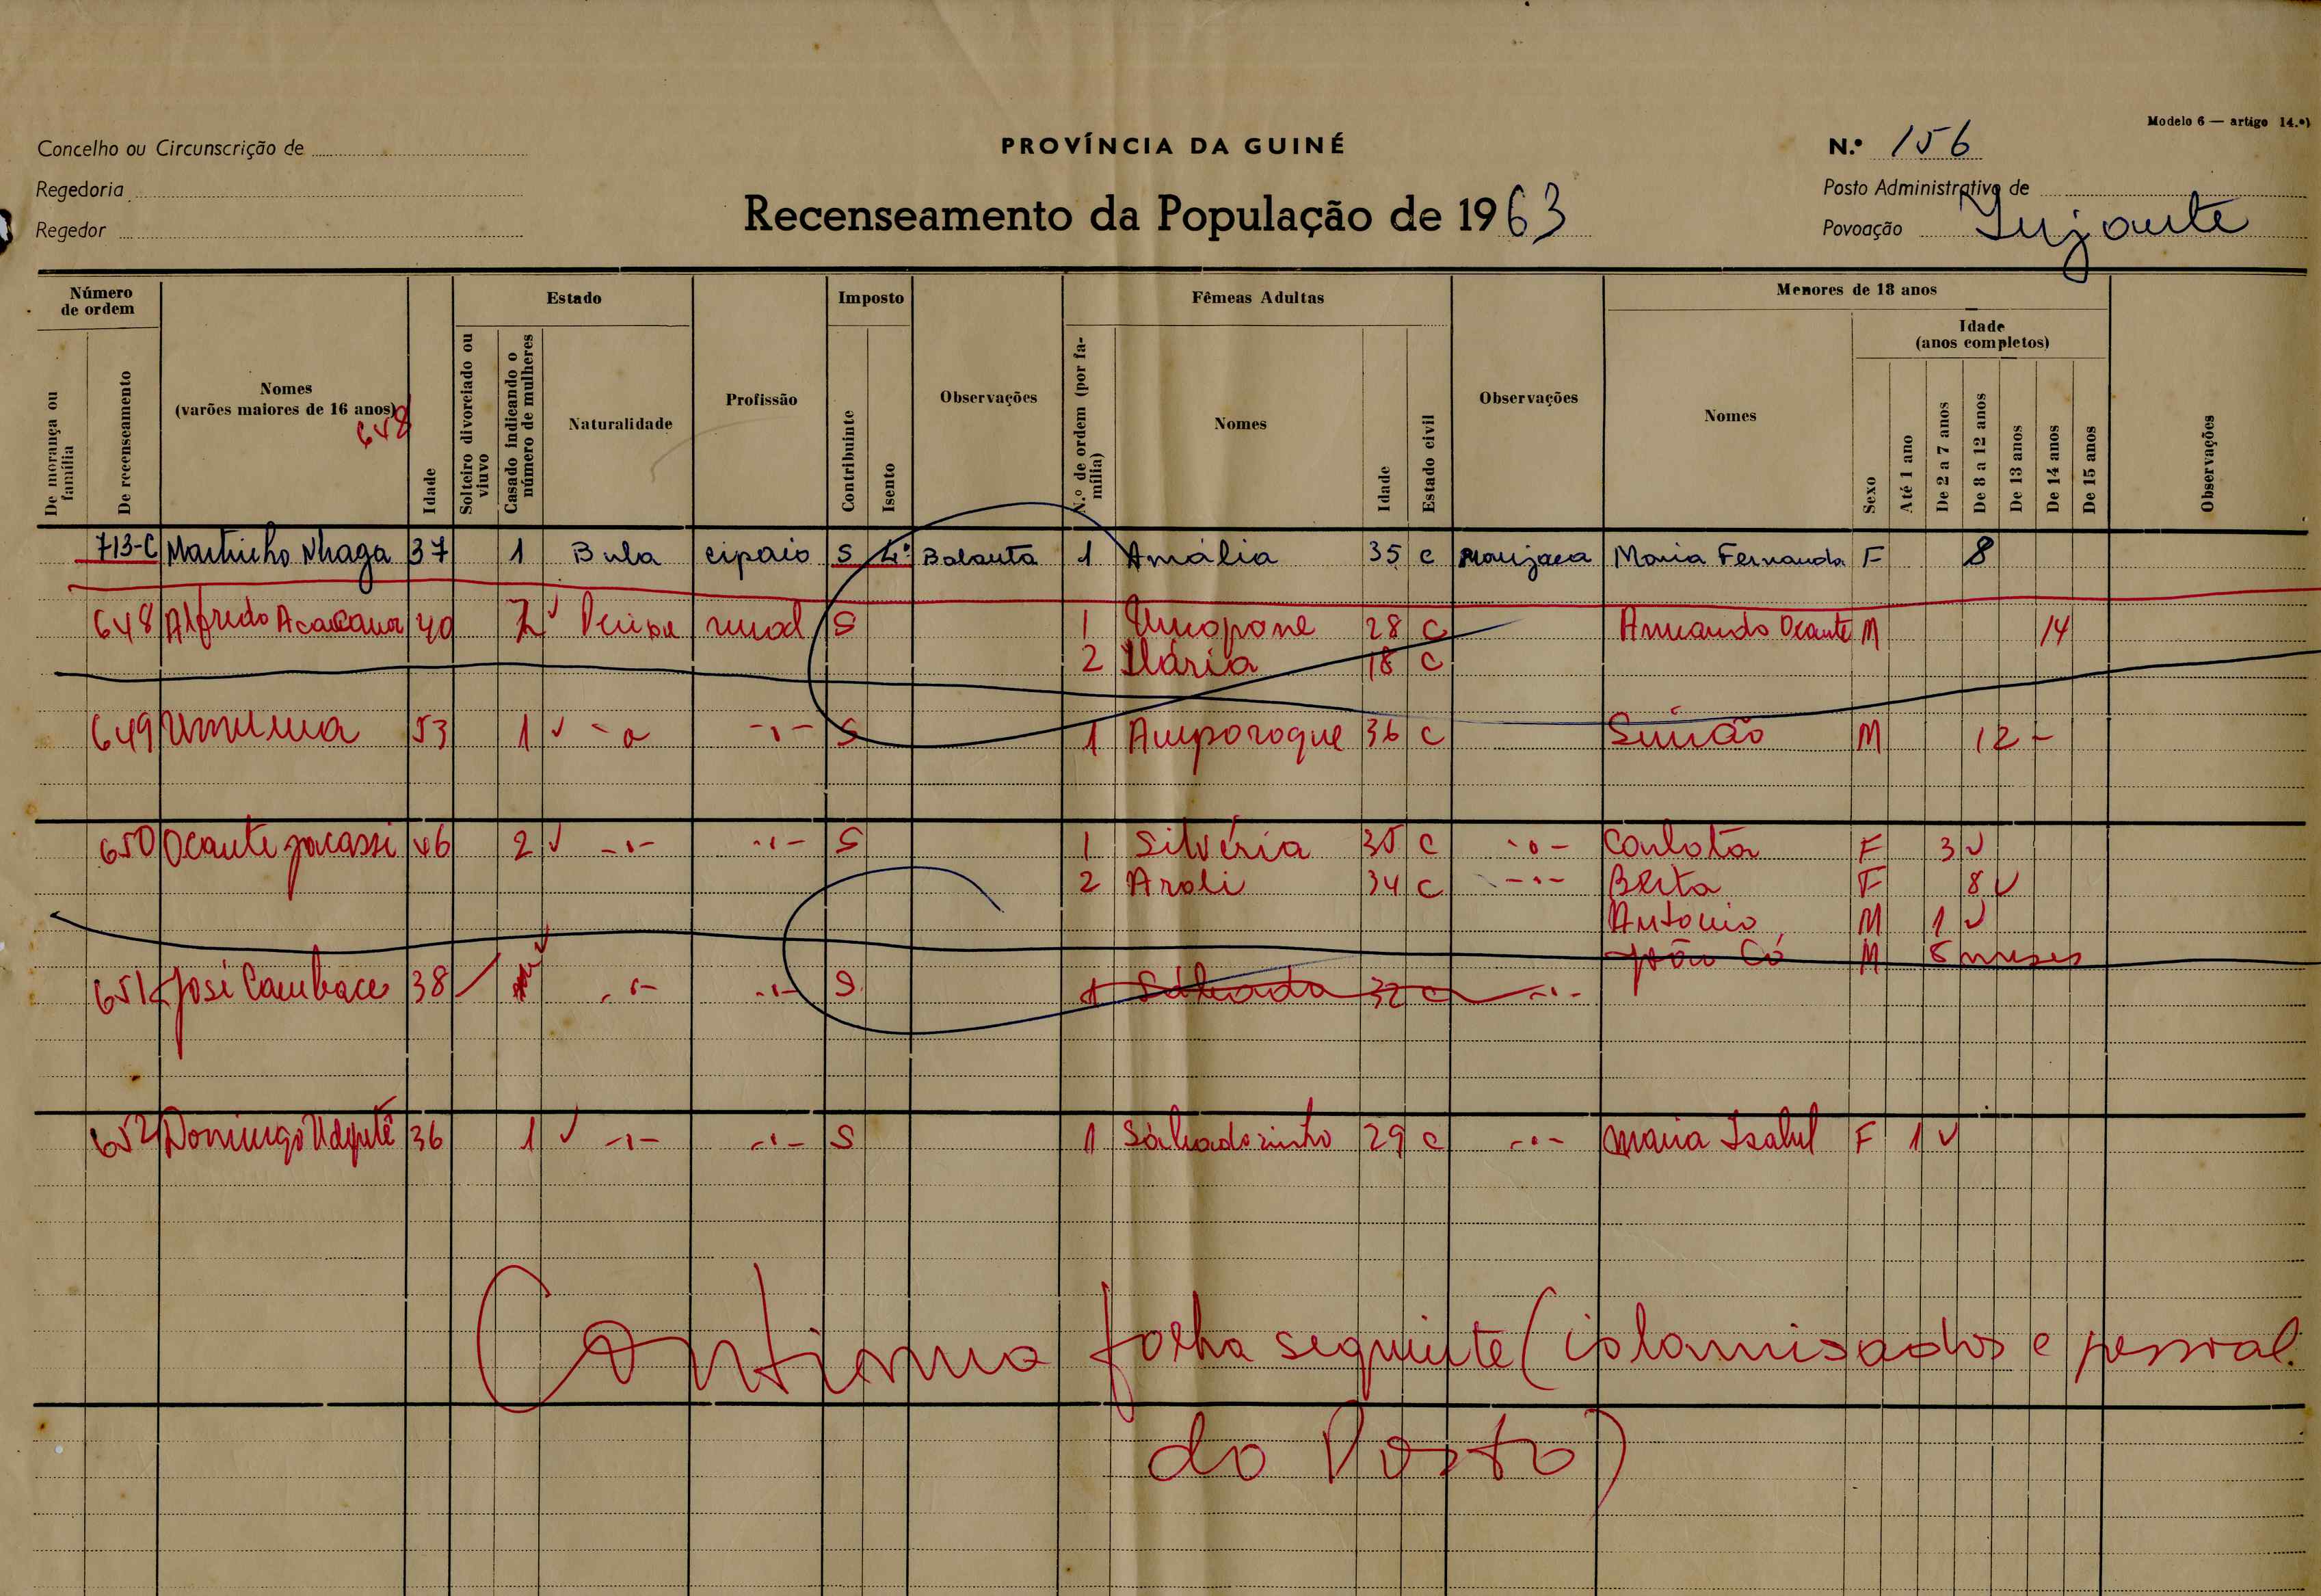 Modelo 6 — artigo 14.º)
Concelho ou Circunscrição de
PROVÍNCIA DA GUINÉ
N.º 156
Regedoria
Posto Administrativo de
Regedor
Recenseamento da População de 1963
Povoação
Número de ordem
Estado
Imposto
Fêmeas Adultas
Menores de 18 anos
De morança ou família
De recenseamento
Nomes
(varões maiores de 16 anos)
648
Idade
Solteiro divorciado ou viuvo
Casado indicando o número de mulheres
Naturalidade
Profissão
Contribuinte
Isento
Observações
N.º de ordem (por família)
Nomes
Idade
Estado civil
Observações
Nomes
Sexo
Idade
(anos completos)
Até 1 ano
De 2 a 7 anos
De 8 a 12 anos
De 13 anos
De 14 anos
De 15 anos
Observações
713-C Martinho Nhaga 37 1 Bula cipaio S 4º Balanta 1 Amália 35 c Manjaca Maria Fernanda F 8
648 Alfredo 40 rural S 1 28 C Armando Ocante M 14
2 Ilária 18 C
649 53 1 S 1 Amporoque 36 C Simão M 12 -
650 Ocante 46 2 -"- -"- S 1 Silvéria 35 C -"- Carlota F 3
2 Aroli 34 C -"- Berta F 8
Antonio M 1
João Có M 8 meses
651 José 38 -"- -"- S 1 32 C -"-
652 Domingo 36 1 -"- -"- S 1 Salvadorinho 29 C -"- Maria Isabel F 1
Continua folha seguinte (islamisados e pessoal
do Posto)